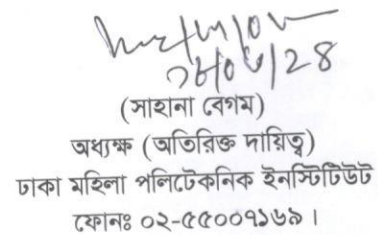 (সাহানা বেগম)
অধ্যক্ষ (অতিরিক্ত দায়িত্ব)
ঢাকা মহিলা পলিটেকনিক ইনস্টিটিউট
ফোনঃ ০২-৫৫০০৭১৬৯।